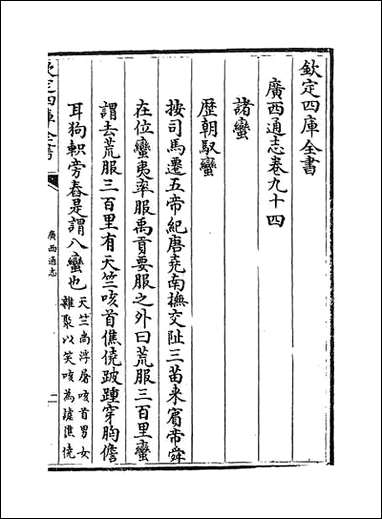 欽定四庫全書
廣西通志卷九十四
諸蠻
歴朝馭蠻
按司馬遷五帝紀唐堯南撫交阯三苗来賓帝舜
在位蠻夷率服禹貢要服之外曰荒服三百里蠻
謂去荒服三百里有天竺咳首僬僥跛踵穿胸儋
耳狗軹旁舂是謂八蠻也
天竺尚浮屠咳首男女
雜聚以笑咳為謔僬僥
欽定四庫全書
廣西通志
一